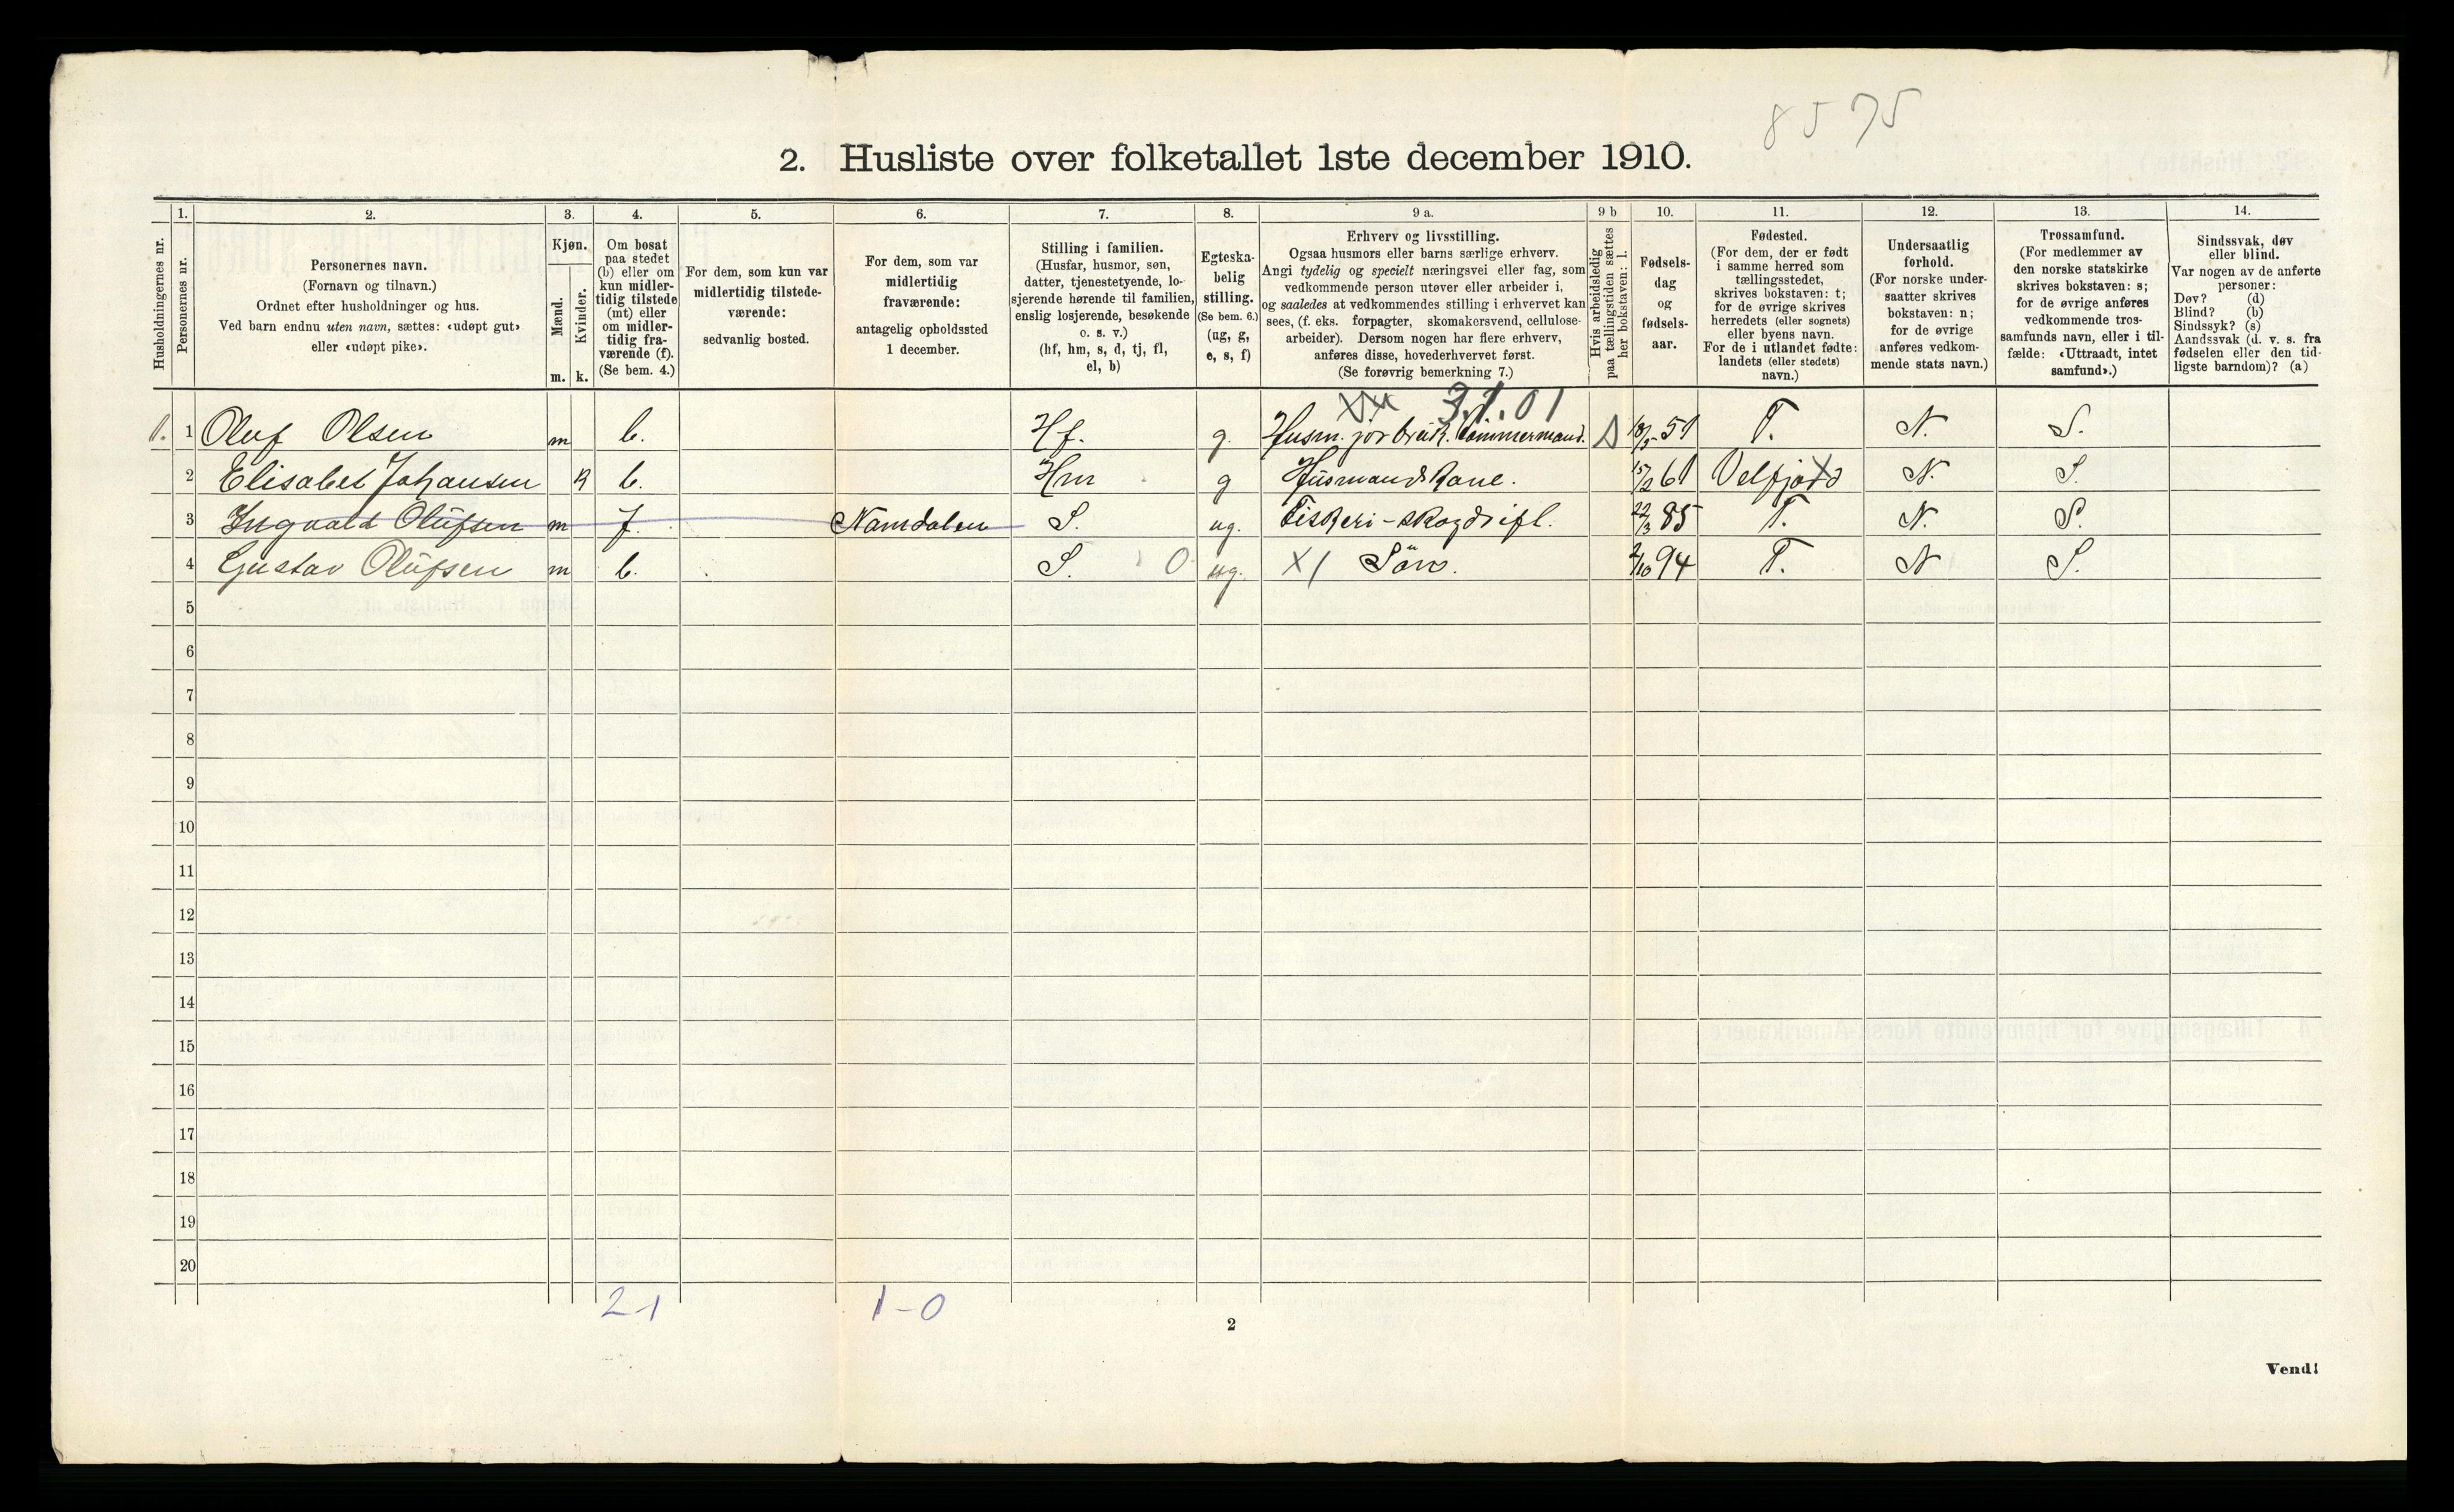 8575
2. Husliste over folketallet 1ste december 1910.
Husholdningernes nr.
1.
Personernes nr.
2.
Personernes navn.
(Fornavn og tilnavn.)
Ordnet efter husholdninger og hus.
Ved barn endnu uten navn, sættes: «udøpt gut»
eller «udøpt pike».
3.
Kjøn.
Mænd.
Kvinder.
m. k.
4.
Om bosat
paa stedet
(b) eller om
kun midler-
tidig tilstede
(mt) eller
om midler-
tidig fra-
værende (f).
(Se bem. 4.)
5.
For dem, som kun var
midlertidig tilstede-
værende:
sedvanlig bosted.
6.
For dem, som var
midlertidig
fraværende:
antagelig opholdssted
1 december.
7.
Stilling i familien.
(Husfar, husmor, søn,
datter, tjenestetyende, lo-
sjerende hørende til familien,
enslig losjerende, besøkende
o. s. v.)
(hf, hm, s, d, tj, fl,
el, b)
8.
Egteska-
belig
stilling.
(Se bem. 6.)
(ug, g,
e, s, f)
9 a.
Erhverv og livsstilling.
Ogsaa husmors eller barns særlige erhverv.
Angi tydelig og specielt næringsvei eller fag, som
vedkommende person utøver eller arbeider i,
og saaledes at vedkommendes stilling i erhvervet kan
sees, (f. eks. forpagter, skomakersvend, cellulose-
arbeider). Dersom nogen har flere erhverv,
anføres disse, hovederhvervet først.
(Se forøvrig bemerkning 7.)
9 b
Hvis arbeidsledig
paa tællingstiden sættes
her bokstaven: l.
10.
Fødsels-
dag
og
fødsels-
aar.
11.
Fødested.
(For dem, der er født
i samme herred som
tællingsstedet,
skrives bokstaven: t;
for de øvrige skrives
herredets (eller sognets)
eller byens navn.
For de i utlandet fødte:
landets (eller stedets)
navn.)
12.
Undersaatlig
forhold.
(For norske under-
saatter skrives
bokstaven: n;
for de øvrige
anføres vedkom-
mende stats navn.)
13.
Trossamfund.
(For medlemmer av
den norske statskirke
skrives bokstaven: s;
for de øvrige anføres
vedkommende tros-
samfunds navn, eller i til-
fælde: «Uttraadt, intet
samfund».)
14.
Sindssvak, døv
eller blind.
Var nogen av de anførte
personer:
Døv? (d)
Blind? (b)
Sindssyk? (s)
Aandssvak (d. v. s. fra
fødselen eller den tid-
ligste barndom)? (a)
3.1.01
1. 1 Oluf Olsen m b. Hf. g. Husm. jorbruk. Tömmermand. 18/5 51 T. N. S.
2 Elisabet Johansen k b. Hm g Husmandskone. 15/2 61 Velfjord N. S.
3 Ingvald Olüfsen m f. Namdalen S. ug. Fiskeri-skogdrift. 22/3 85 T. N. S.
4 Gustav Olüfsen m b. S. 0 ug. X/ Sön. 2/10 94 T. N S.
5
6
7
8
9
10
11
12
13
14
15
16
17
18
19
20
2-1 1-0
2
Vend!